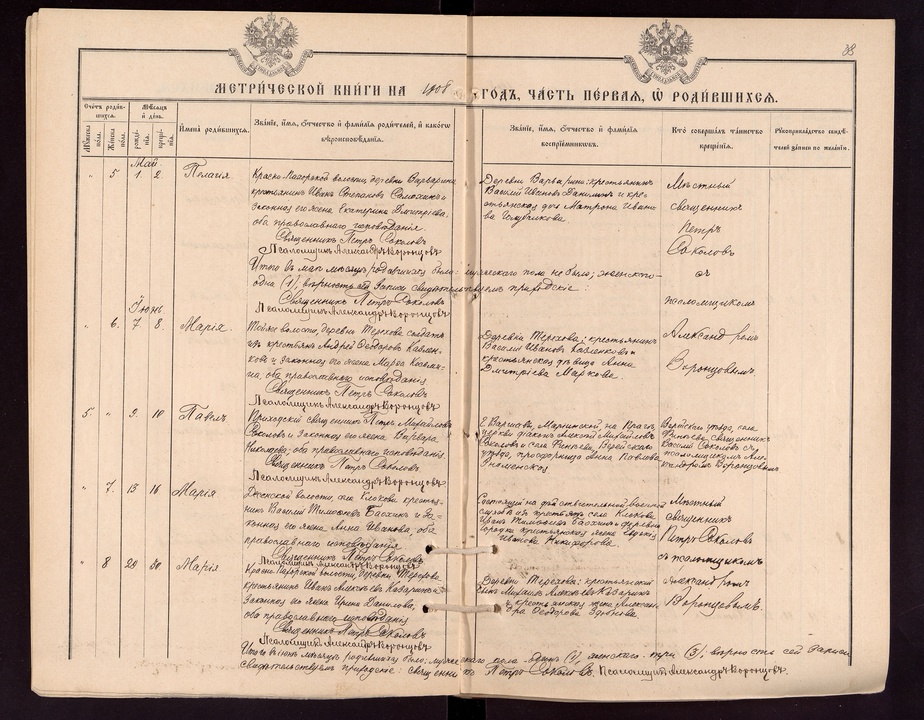 38
МЕТРИЧЕСКОЙ КНИГИ НА 1908 ГОДЪ, ЧАСТЬ ПЕРВАЯ, Ѡ РОДИВШИХСЯ.
Счетъ родив-
шихся.
Мѣсяцъ
и день.
Мужеска пола.
Женска пола.
рожде-
нія.
креще-
нія.
Имена родившихся.
Званіе, имя, отчество и фамилія родителей, и какого
вѣроисповѣданія.
Званіе, имя, отчество и фамилія
воспріемниковъ.
Кто совершалъ таинство
крещенія.
Рукоприкладство свидѣ-
телей записи по желанію.
Май
" 5 1. 2. Пелагія
волости, деревни Варварина
крестьянинъ Иванъ Степановъ
законная его жена Екатерина Димитріева,
оба православнаго исповѣданія.
Священникъ Петръ Соколовъ
Псаломщикъ Александръ Воронцовъ
Деревни Варварина: крестьянинъ
Василій Ивановъ и кре-
стьянская дочь Матрона Ивано
ва Голубчикова
Мѣстный
священникъ
Петръ
Соколовъ
съ
псаломщикомъ
Александромъ
Воронцовымъ.
Итого въ маѣ мѣсяцѣ родившихся было: мужескаго пола не было; женскаго-
одна (1), вѣрность сей записи свидѣтельствуемъ приходскіе:
Священникъ Петръ Соколовъ
Псаломщикъ Александръ Воронцовъ
Іюнь
" 6. 7. 8. Марія.
Тойже волости, деревни Терехова солдатъ
изъ крестьянъ Андрей Ѳеодоровъ Кавлен-
ковъ и законная его жена Марѳа Козьми-
на; оба православнаго исповѣданія
Священникъ Петръ Соколовъ
Псаломщикъ Александръ Воронцовъ
Деревни Терехова: крестьянинъ
Василій Ивановъ Кавленковъ и
крестьянская дѣвица Анна
Димитріева Маркова.
5 " 9. 10 Павелъ
Приходскій священникъ Петръ Михайловъ
Соколовъ и законная его жена Варвара
Николаева; оба православнаго исповѣданія.
Священникъ Петръ Соколовъ
Псаломщикъ Александръ Воронцовъ
Г. Варшавы, Маріинской, на Прагѣ
церкви діаконъ Алексѣй Михайловъ
Соколовъ и села Финѣева, Верейскаго
уѣзда, просфорница Анна Павлова
Верейскаго уѣзда, села
Финѣева, священникъ
Василій Соколовъ съ
псаломщикомъ Але-
ксандромъ Воронцовымъ
" 7. 13 16 Марія
волости, села Клокова крестья-
нинъ Василій Филиповъ Басхинъ и за-
конная его жена Анна Иванова, оба
православнаго исповѣданія
Священникъ Петръ Соколовъ
Псаломщикъ Александръ Воронцовъ
Состоящій на дѣйствительной военной
службѣ изъ крестьянъ села Клокова
Иванъ Филиповъ Басхинъ и деревни
Городка крестьянская жена Евдокія
Иванова Никифорова.
Мѣстный
священникъ
Петръ Соколовъ
съ псаломщикомъ
Александромъ
Воронцовымъ.
" 8 29 30 Марія
волости, деревни Терехова
крестьянинъ Иванъ Алексѣевъ Казаринъ и
законная его жена Ирина Данилова,
оба православнаго исповѣданія
Священникъ Петръ Соколовъ
Псаломщикъ Александръ Воронцовъ
Деревни Терехова: крестьянскій
сынъ Михаилъ Алексѣевъ Казаринъ
и крестьянская жена Алексан-
дра Ѳеодорова
Итого въ іюнѣ мѣсяцѣ родившихся было: мужескаго пола одинъ (1), женскаго три (3), вѣрность сей записи
свидѣтельствуемъ приходскіе: священникъ Петръ Соколовъ. Псаломщикъ Александръ Воронцовъ.